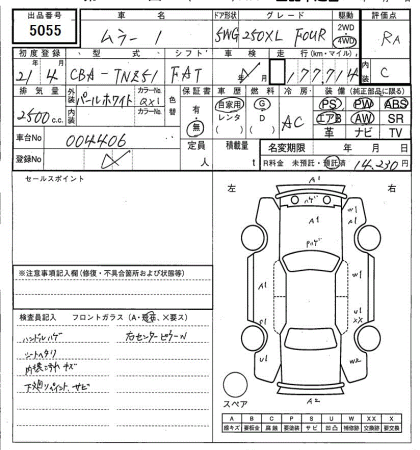 出品番号 車名 ドア形状 グレード 駆動 評価点
5055 ムラーノ 5WG 250XL FOUR 2WD 4WD RA
初度登録 型式 シフト 車検 走行(km・マイル) 内装
21年4月 CBA-TNZ51 FAT 年 月 177,714 C
排気量 外装 パールホワイト カラーNo. QX1 色替 保証書 車歴 燃料 冷房 装備(純正部品に限る)
2500c.c. 内装 カラーNo. 有・無 自家用 レンタ ( ) G D ( ) AC PS PW ABS
エアB AW SR
革 ナビ TV
車台No 004406 定員 人 積載量 t 名変期限 年 月 日
登録No R料金 未預託・預託済 14,230円
セールスポイント 左 右
A1
ハゲ
A1 A1 W1
A1
A1
U1
P1 U1
XX
U1 U1 W2
A2
スペア
※注意事項記入欄(修復・不具合箇所および状態等)
検査員記入 フロントガラス(A・飛石、X要ス)
ハンドルハゲ
シートヘタリ
内張ニヨゴレ キズ
下廻リペイント、サビ
A B C P S U W X XX X
線キズ 要板金 腐蝕 要塗装 サビ 凹凸 補修跡 交換跡 要交換